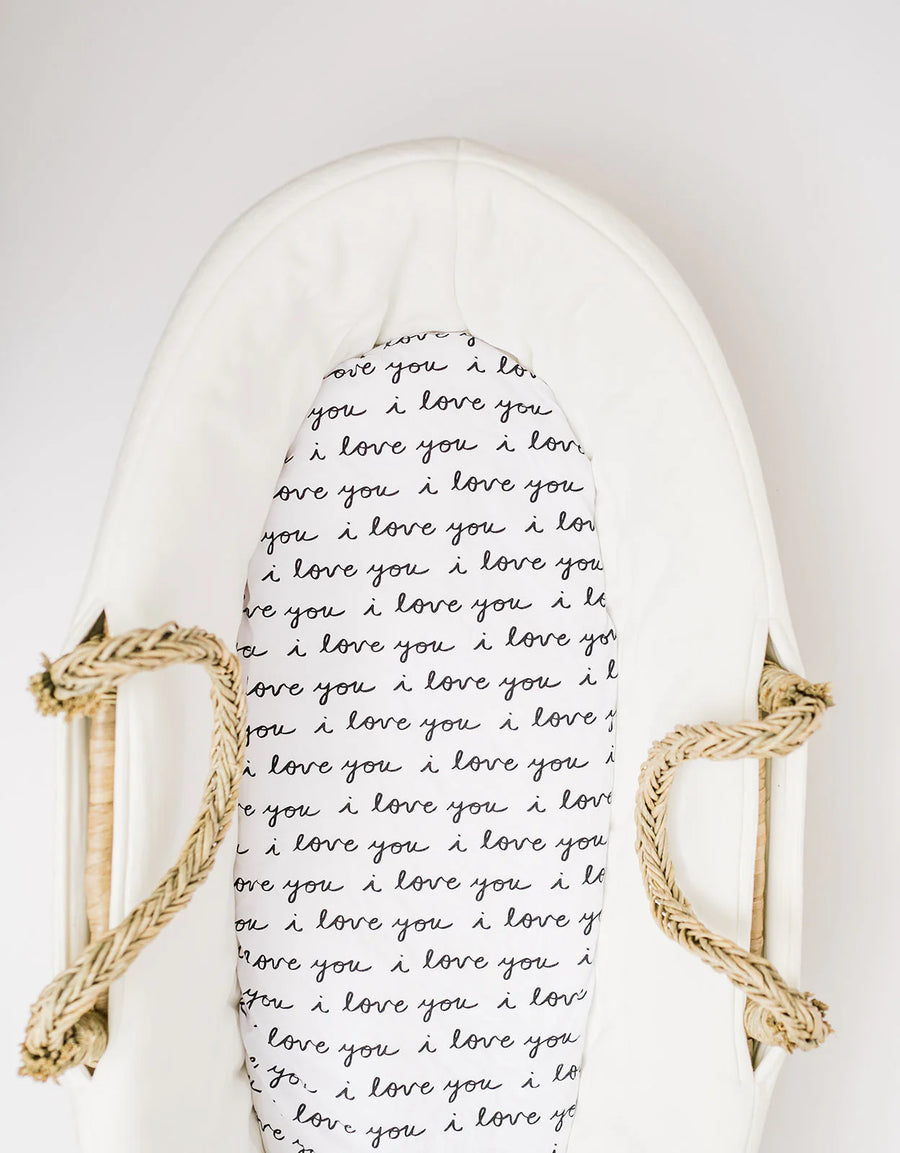 love y
love you i lov
you i love you
i love you i love
love you i love you
you i love you i lov
i love you i love you
ve you i love you i lo
u i love you i love you
love you i love you i l
you i love you i love y
i love you i love you i
e you i love you i love
i love you i love you
ove you i love you i lo
ou i love you i love y
love you i love you i
you i love you i love
i love you i love you
you i love you i lo
i love you i love yo
ve you i love you